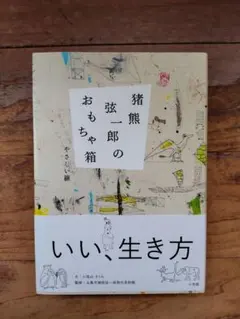 猪熊
弦一郎の
おもちゃ箱
やさしい線
いい、生き方
小学館